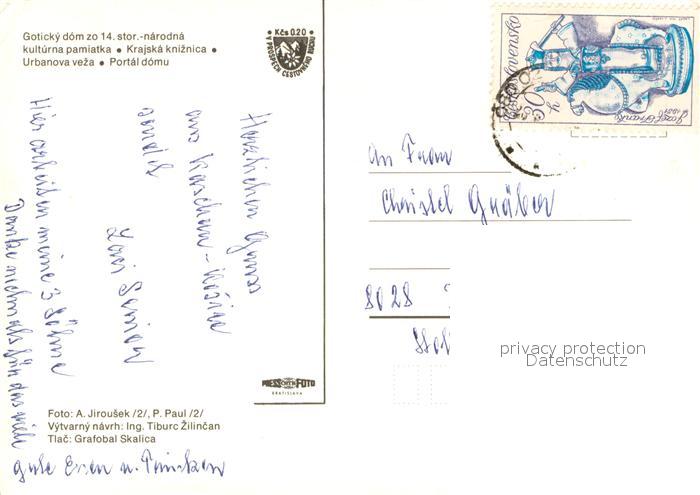 Gotický dóm zo 14. stor.-národná
kultúrna pamiatka • Krajská knižnica •
Urbanova veža • Portál dómu
Kčs 0.20
A PROSPECH CESTOVNÉHO RUCHU
Herzlichen Gruss
aus Kaschau - Košice
sendet
Laci Senior
Hier arbeiten meine 3 Söhne
Danke nochmals für das viele
gute Essen u. Trinken
Foto: A. Jiroušek /2/, P. Paul /2/
Výtvarný návrh: Ing. Tiburc Žilinčan
Tlač: Grafobal Skalica
PRESSFOTO
BRATISLAVA
An Frau
Christel Gräber
8028
privacy protection
Datenschutz